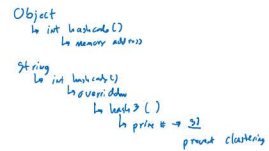 Object
↳ int hashcode()
↳ memory address
String
↳ int hashcode()
↳ overridden
↳ hash3 ( )
↳ prime # → 31
prevent clustering